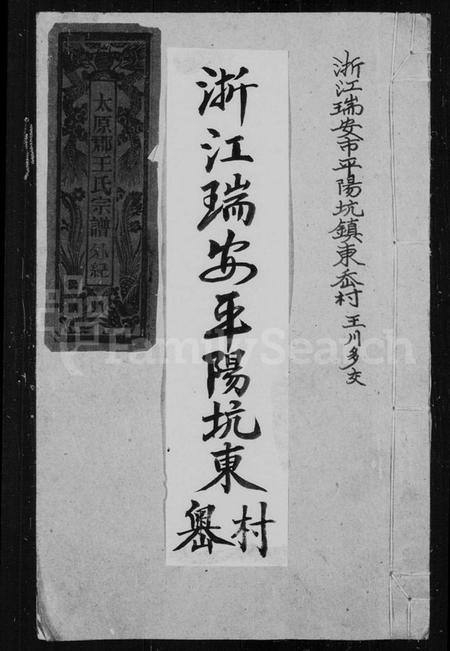 浙江瑞安市平陽坑鎮東岙村 王川多交
浙江瑞安平陽坑東
村
太原郡王氏宗譜外紀
FamilySearch